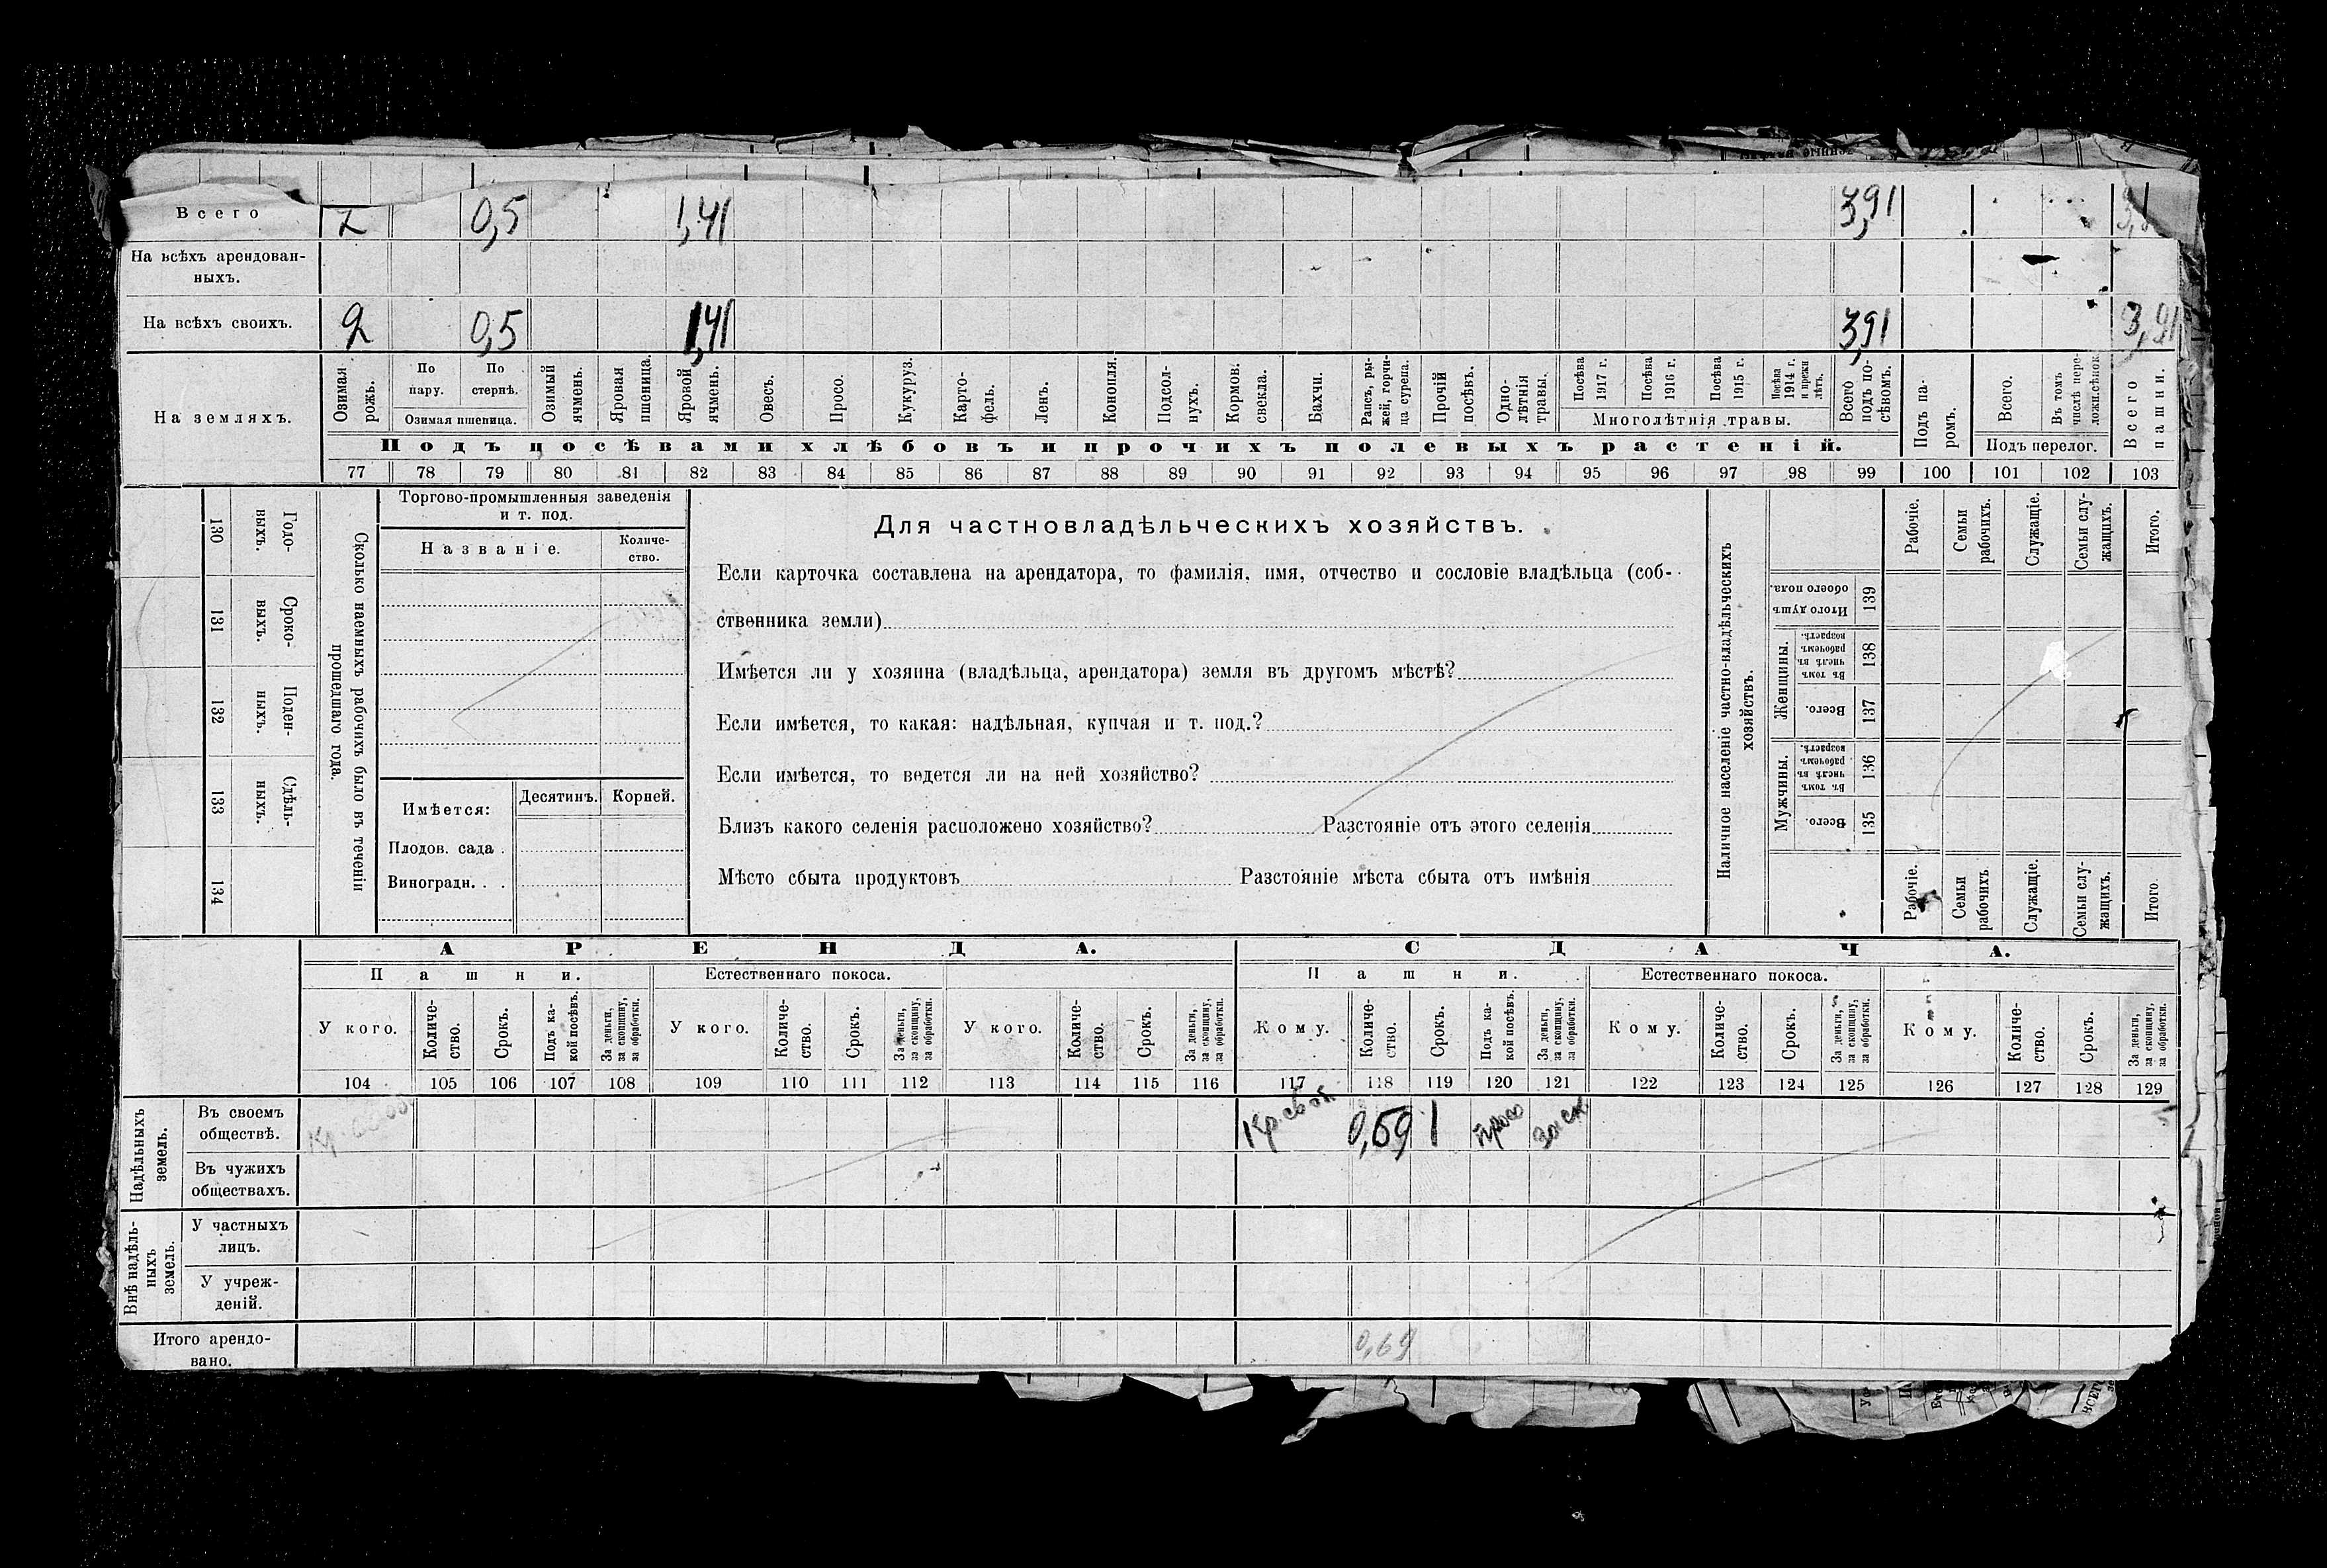 Всего 2 0,5 1,41 3,91
На всѣхъ арендован-
ныхъ.
На всѣхъ своихъ. 2 0,5 1,41 3,91 3,91
На земляхъ.
Озимая
рожь.
По
пару.
По
стернѣ.
Озимая пшеница.
Озимый
ячмень.
Яровая
пшеница.
Яровой
ячмень.
Овесъ.
Просо.
Кукуруз.
Карто-
фель.
Ленъ.
Конопля.
Подсол-
нухъ.
Кормов.
свекла.
Бахчи.
Рапсъ, ры-
жей, горчи-
ца сурепа.
Прочій
посѣвъ.
Одно-
лѣтнія
травы.
Посѣва
1917 г.
Посѣва
1916 г.
Посѣва
1915 г.
Посѣва
1914 г.
и прежн
лѣтъ.
Многолѣтнія травы.
Всего
подъ по-
сѣвомъ.
Подъ па-
ромъ.
Всего.
Въ томъ
числѣ пере-
ложн.сѣнок.
Подъ перелог.
Всего
пашни.
Подъ посѣвами хлѣбовъ и прочихъ полевыхъ растеній.
77 78 79 80 81 82 83 84 85 86 87 88 89 90 91 92 93 94 95 96 97 98 99 100 101 102 103
130
Годо-
выхъ.
131
Сроко-
выхъ.
132
Поден-
ныхъ.
133
Сдѣль-
ныхъ.
134
Сколько наемныхъ рабочихъ было въ теченіи
прошедшаго года.
Торгово-промышленныя заведенія
и т. под.
Названіе.
Количе-
ство.
Имѣется:
Десятинъ.
Корней.
Плодов. сада .
Виноградн. . .
Для частновладѣльческихъ хозяйствъ.
Если карточка составлена на арендатора, то фамилія, имя, отчество и сословіе владѣльца (соб-
ственника земли)
Имѣется ли у хозяина (владѣльца, арендатора) земля въ другомъ мѣстѣ?
Если имѣется, то какая: надѣльная, купчая и т. под.?
Если имѣется, то ведется ли на ней хозяйство?
Близъ какого селенія расположено хозяйство? Разстояніе отъ этого селенія
Мѣсто сбыта продуктовъ Разстояніе мѣста сбыта отъ имѣнія
Наличное населеніе частно-владѣльческихъ
хозяйствъ.
Рабочіе.
Семьи
рабочихъ.
Служащіе.
Семьи слу-
жащихъ.
Итого.
Итого душъ
обоего пола.
139
Женщины.
Въ томъ
числѣ въ
рабочемъ
возрастѣ.
138
Всего.
137
Мужчины.
Въ томъ
числѣ въ
рабочемъ
возрастѣ.
136
Всего.
135
Рабочіе.
Семьи
рабочихъ
Служащіе.
Семьи слу-
жащихъ.
Итого
АРЕНДА. СДАЧА.
Пашни. Естественнаго покоса. Пашни. Естественнаго покоса.
У кого.
Количе-
ство.
Срокъ.
Подъ ка-
кой посѣвъ.
За деньги,
за скопщину,
за обработки.
У кого.
Количе-
ство.
Срокъ.
За деньги,
за скопщину,
за обработки.
У кого.
Количе-
ство.
Срокъ.
За деньги,
за скопщину,
за обработки.
Кому.
Количе-
ство.
Срокъ.
Подъ ка-
кой посѣвъ.
За деньги,
за скопщину,
за обработки.
Кому.
Количе-
ство.
Срокъ.
За деньги,
за скопщину,
за обработки.
Кому.
Количе-
ство.
Срокъ.
За деньги,
за скопщину,
за обработки.
104 105 106 107 108 109 110 111 112 113 114 115 116 117 118 119 120 121 122 123 124 125 126 127 128 129
Надѣльныхъ
земель.
Въ своемъ
обществѣ.
0,69 1 просо за ск
Въ чужихъ
обществахъ.
Внѣ надѣль-
ныхъ
земель.
У частныхъ
лицъ.
У учреж-
деній.
Итого арендо-
вано.
0,69